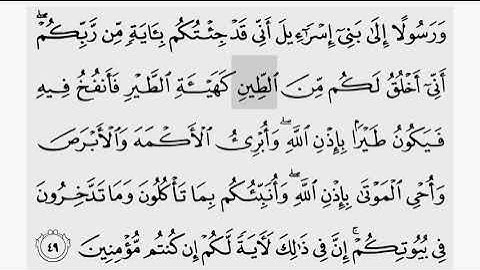 وَرَسُولًا إِلَىٰ بَنِىٓ إِسْرَٰٓءِيلَ أَنِّى قَدْ جِئْتُكُم بِـَٔايَةٍ مِّن رَّبِّكُمْ ۖ
أَنِّىٓ أَخْلُقُ لَكُم مِّنَ ٱلطِّينِ كَهَيْـَٔةِ ٱلطَّيْرِ فَأَنفُخُ فِيهِ
فَيَكُونُ طَيْرًۢا بِإِذْنِ ٱللَّهِ ۖ وَأُبْرِئُ ٱلْأَكْمَهَ وَٱلْأَبْرَصَ
وَأُحْىِ ٱلْمَوْتَىٰ بِإِذْنِ ٱللَّهِ ۖ وَأُنَبِّئُكُم بِمَا تَأْكُلُونَ وَمَا تَدَّخِرُونَ
فِى بُيُوتِكُمْ ۚ إِنَّ فِى ذَٰلِكَ لَـَٔايَةً لَّكُمْ إِن كُنتُم مُّؤْمِنِينَ ٤٩